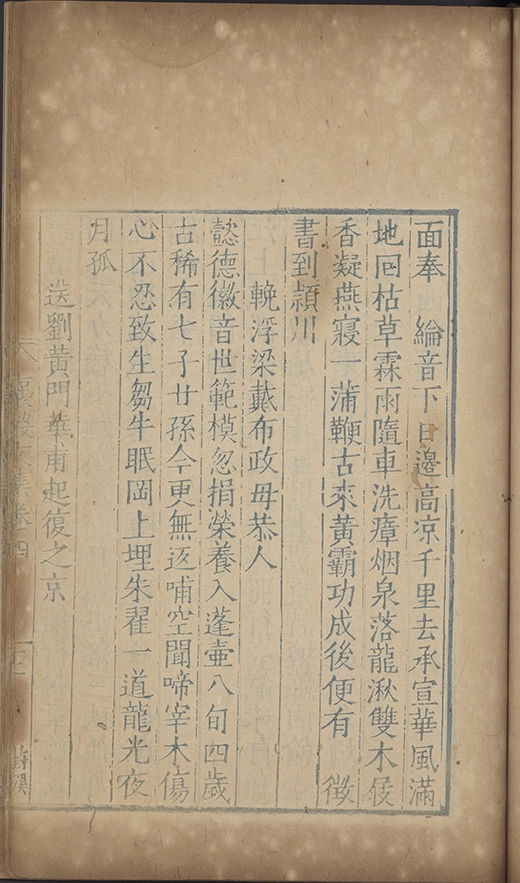 面奉 綸音下日邊高凉千里去承宣華風滿
地囘枯草霖雨隨車洗瘴烟泉落龍湫雙木屐
香凝燕寢一蒲鞭古來黃霸功成後便有 徴
書到頴川
輓浮梁戴布政毋恭人
懿德徽音世範模忽捐榮養入蓬壷八旬四歲
古稀有七子廿孫今更無返哺空聞啼宰木傷
心不忍致生芻牛眠岡上埋朱翟一道龍光夜
月孤
送劉黃門華甫起復之京